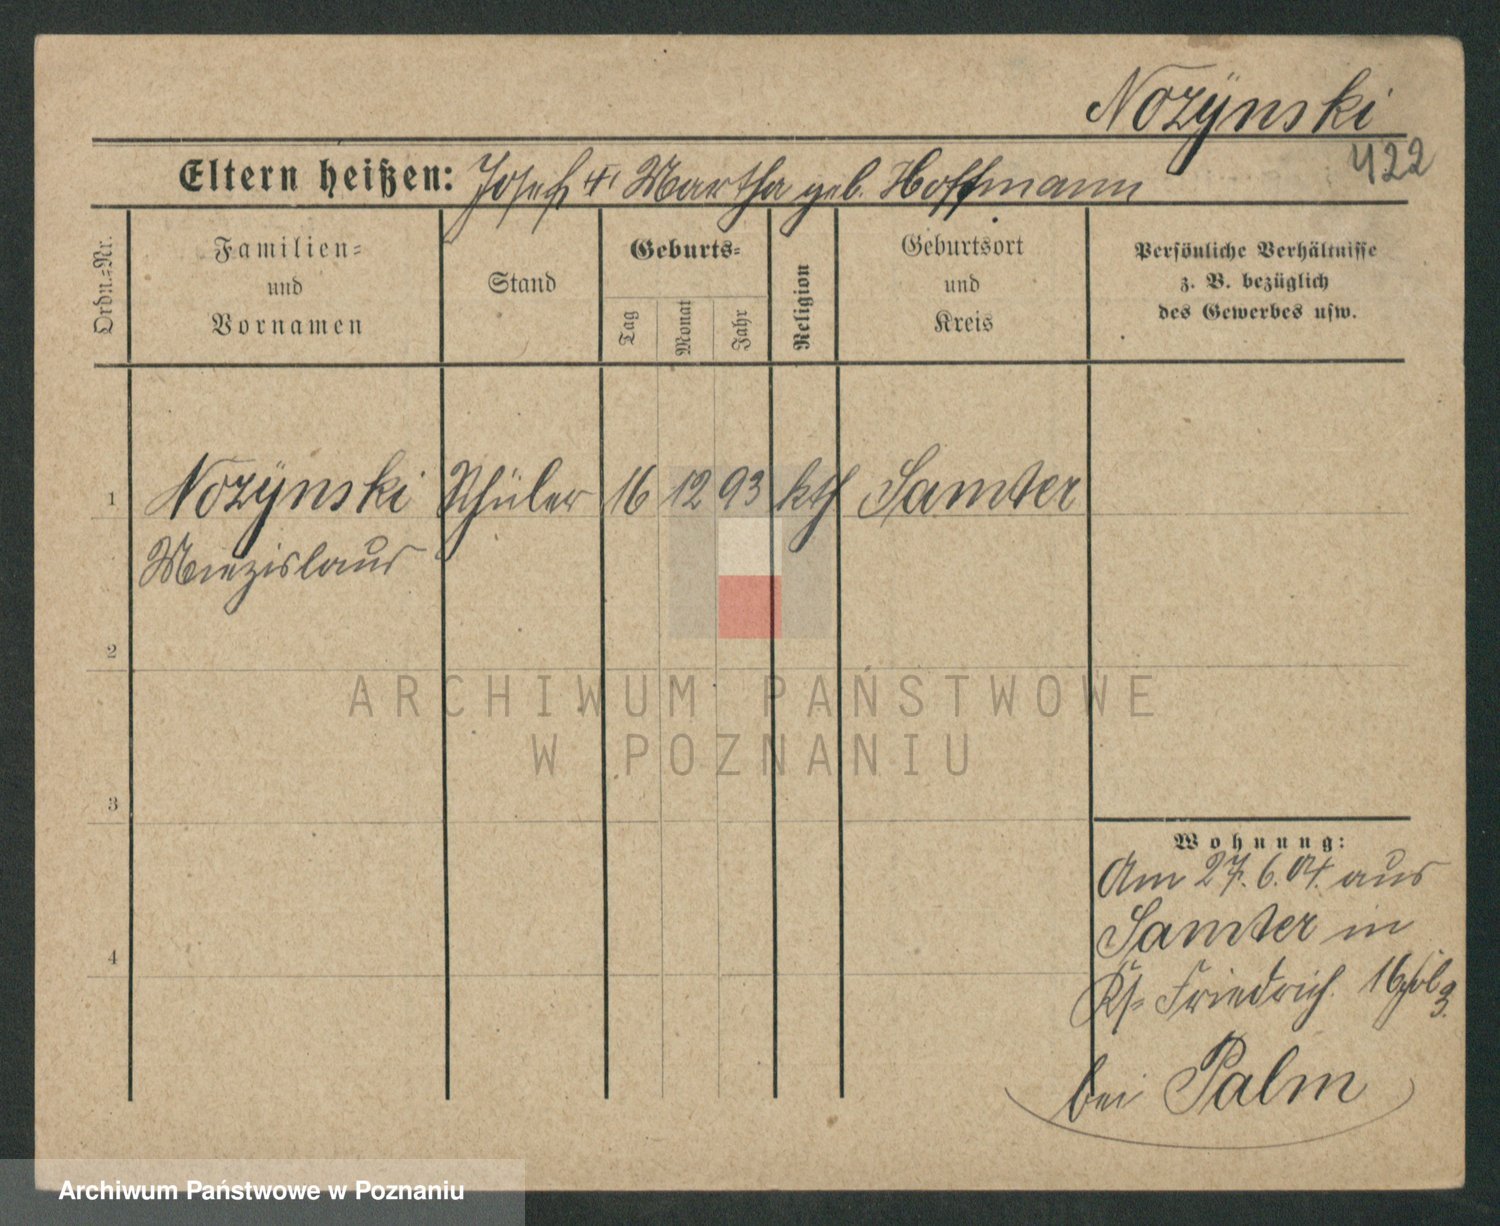 Nozÿnski
422
Eltern heißen: Josef u Martha geb. Hoffmann
Ordn.-Nr.
Familien-
und
Vornamen
Stand
Geburts-
Tag
Monat
Jahr
Religion
Geburtsort
und
Kreis
Persönliche Verhältnisse
z. B. bezüglich
des Gewerbes usw.
1
Nozÿnski Schüler 16 12 93 kth Samter
Miezislaus
2
ARCHIWUM PAŃSTWOWE
W POZNANIU
3
Wohnung:
Am 27.6.04. aus
Samter in
4
Friedrich. 16
bei Palm
Archiwum Państwowe w Poznaniu